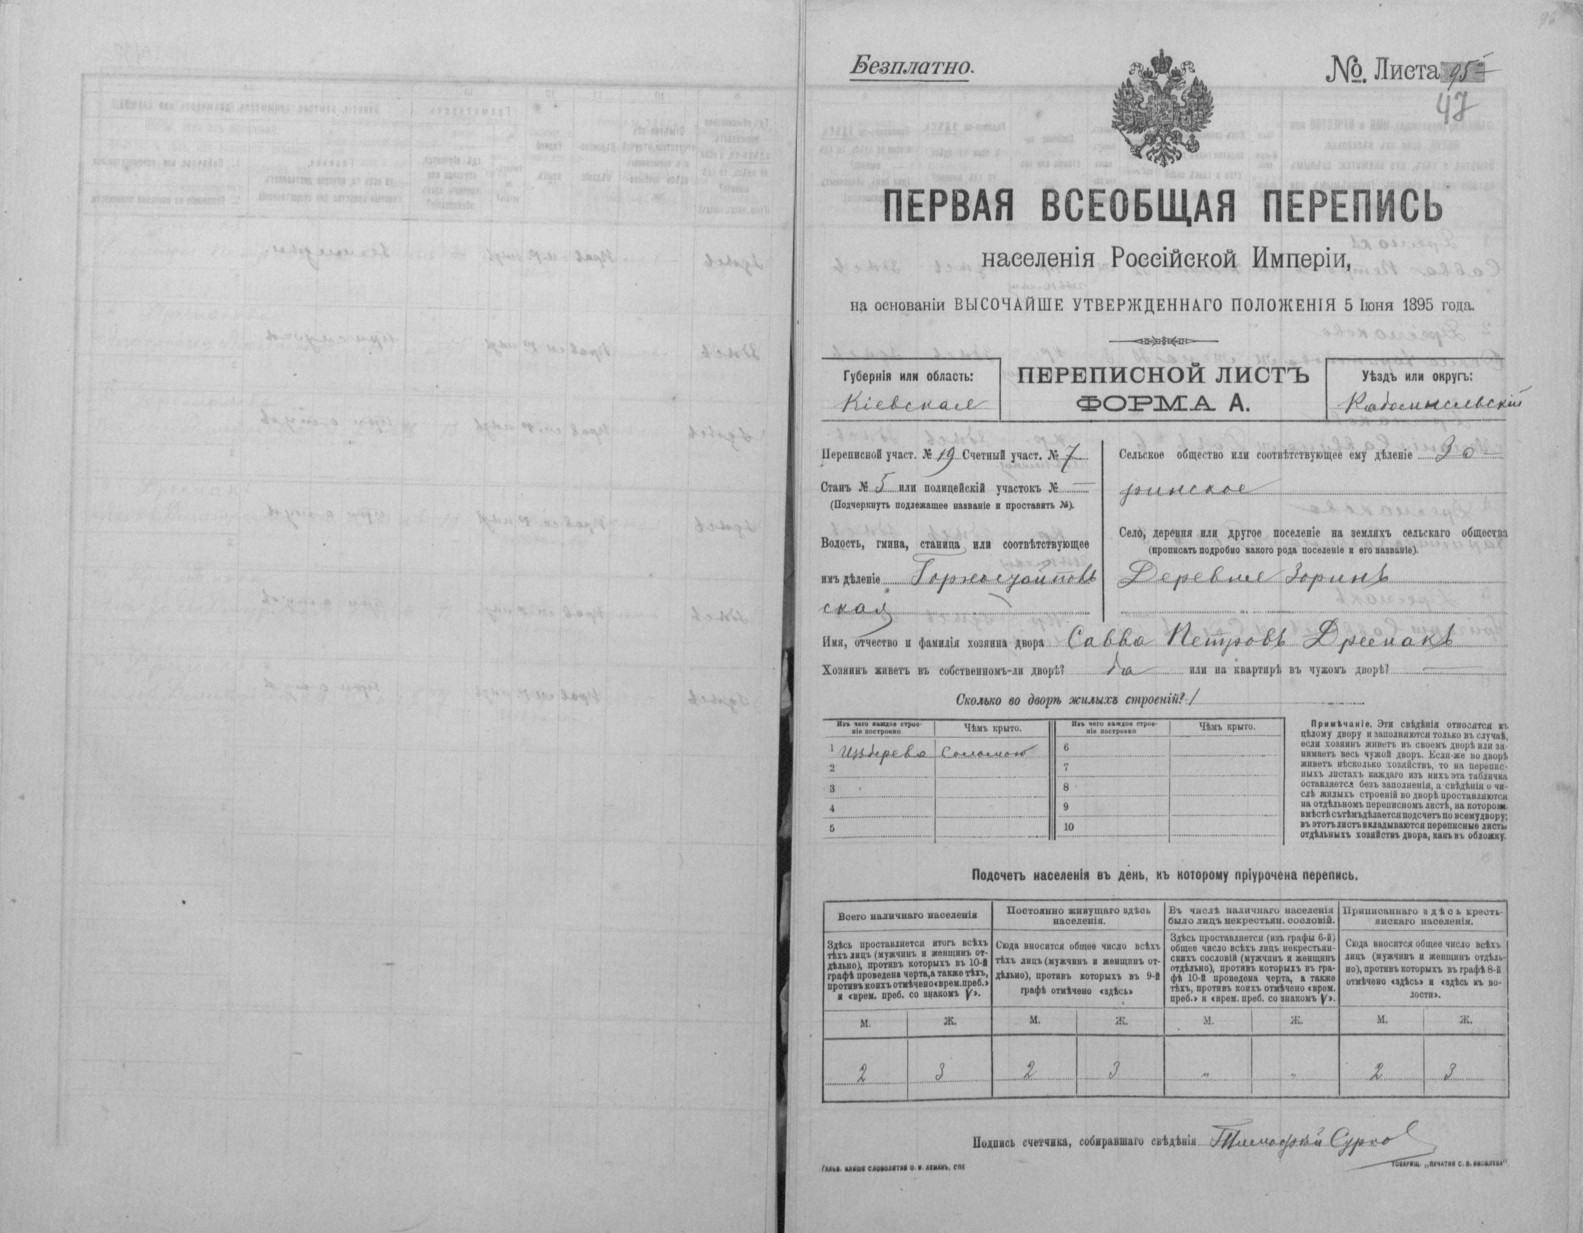 Безплатно.
№. Листа 95
47
ПЕРВАЯ ВСЕОБЩАЯ ПЕРЕПИСЬ
населенія Россійской Имперіи,
на основаніи ВЫСОЧАЙШЕ УТВЕРЖДЕННАГО ПОЛОЖЕНІЯ 5 Іюня 1895 года.
Губернія или область:
Кіевская
ПЕРЕПИСНОЙ ЛИСТЪ
ФОРМА А.
Уѣздъ или округъ:
Переписной участ. № 19 Счетный участ. № 7
Станъ № 5 или полицейскій участокъ № —
(Подчеркнуть подлежащее названіе и проставить №).
Волость, гмина, станица или соотвѣтствующее
имъ дѣленіе Горностайпов
ская
Сельское общество или соотвѣтствующее ему дѣленіе Зо
ринское
Село, деревня или другое поселеніе на земляхъ сельскаго общества
(прописать подробно какого рода поселеніе и его названіе).
Деревня Зоринъ
Имя, отчество и фамилія хозяина двора Савва Петровъ Дремакъ
Хозяинъ живетъ въ собственномъ-ли дворѣ? да или на квартирѣ въ чужомъ дворѣ? —
Сколько во дворѣ жилыхъ строеній? 1
Изъ чего каждое строе-
ніе построено
Чѣмъ крыто.
Изъ чего каждое строе-
ніе построено
Чѣмъ крыто.
1 Изъ дерева Соломою 6
2 7
3 8
4 9
5 10
Примѣчаніе. Эти свѣдѣнія относятся къ
цѣлому двору и заполняются только въ случаѣ,
если хозяинъ живетъ въ своемъ дворѣ или за-
нимаетъ весь чужой дворъ. Если-же во дворѣ
живетъ нѣсколько хозяйствъ, то на перепис-
ныхъ листахъ каждаго изъ нихъ эта табличка
оставляется безъ заполненія, а свѣдѣнія о чи-
слѣ жилыхъ строеній во дворѣ проставляются
на отдѣльномъ переписномъ листѣ, на которомъ
вмѣстѣ съ тѣмъ дѣлается подсчетъ по всему двору;
въ этотъ листъ вкладываются переписные листы
отдѣльныхъ хозяйствъ двора, какъ въ обложку.
Подсчетъ населенія въ день, къ которому пріурочена перепись.
Всего наличнаго населенія
Постоянно живущаго здѣсь
населенія.
Въ числѣ наличнаго населенія
было лицъ некрестьян. сословій.
Приписаннаго здѣсь кресть-
янскаго населенія.
Здѣсь проставляется итогъ всѣхъ
тѣхъ лицъ (мужчинъ и женщинъ от-
дѣльно), противъ которыхъ въ 10-й
графѣ проведена черта, а также тѣхъ,
противъ коихъ отмѣчено «врем. преб.»
и «врем. преб. со знакомъ V».
Сюда вносится общее число всѣхъ
тѣхъ лицъ (мужчинъ и женщинъ от-
дѣльно), противъ которыхъ въ 9-й
графѣ отмѣчено «здѣсь»
Здѣсь проставляется (изъ графы 6-й)
общее число всѣхъ лицъ некрестьян-
скихъ сословій (мужчинъ и женщинъ
отдѣльно), противъ которыхъ въ гра-
фѣ 10-й проведена черта, а также
тѣхъ, противъ которыхъ отмѣчено «врем.
преб.» и «врем. преб. со знакомъ V».
Сюда вносится общее число всѣхъ
лицъ (мужчинъ и женщинъ отдѣль-
но), противъ которыхъ въ графѣ 8-й
отмѣчено «здѣсь» и «здѣсь къ во-
лости».
М. Ж. М. Ж. М. Ж. М. Ж.
2 3 2 3 „ „ 2 3
Подпись счетчика, собиравшаго свѣдѣнія Тимофей